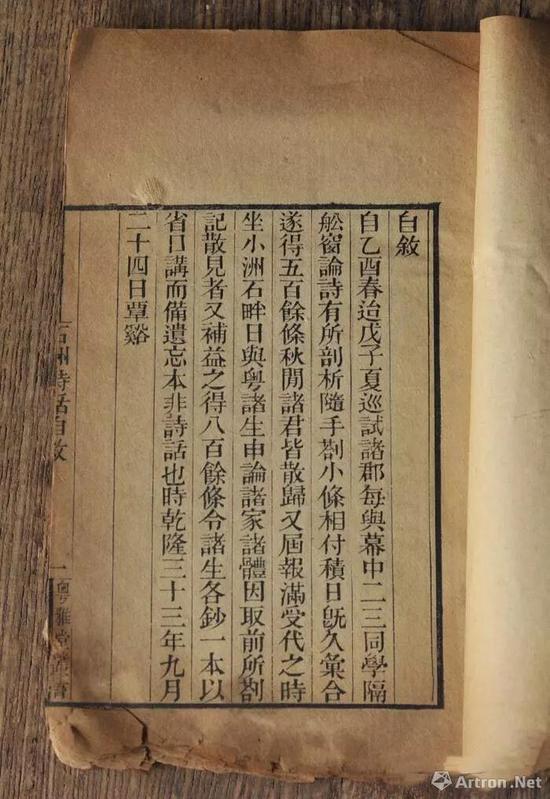 自敘
自乙酉春迨戊子夏巡試諸郡每與幕中二三同學隔
舩窗論詩有所剖析隨手劄小條相付積日旣久彙合
遂得五百餘條秋閒諸君皆散歸又屆報滿受代之時
坐小洲石畔日與粤諸生申論諸家諸體因取前所劄
記散見者又補益之得八百餘條令諸生各鈔一本以
省口講而備遺忘本非詩話也時乾隆三十三年九月
二十四日覃谿
石洲詩話自敘
一
粤雅堂叢書
Artron.Net